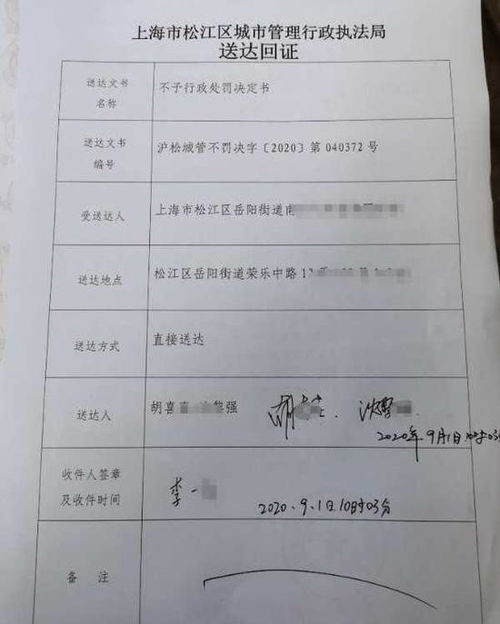 上海市松江区城市管理行政执法局
送达回证
送达文书
名称
不予行政处罚决定书
送达文书
编号
沪松城管不罚决字〔2020〕第 040372 号
受送达人
上海市松江区岳阳街道南
送达地点
松江区岳阳街道荣乐中路1
送达方式
直接送达
送达人
胡喜
强
胡
沈
2020年9月1日10时03分
收件人签章
及收件时间
李一
2020.9.1日10时03分
备 注